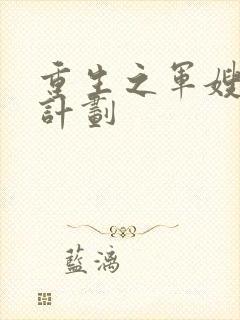 重生之軍嫂
計劃
藍漓